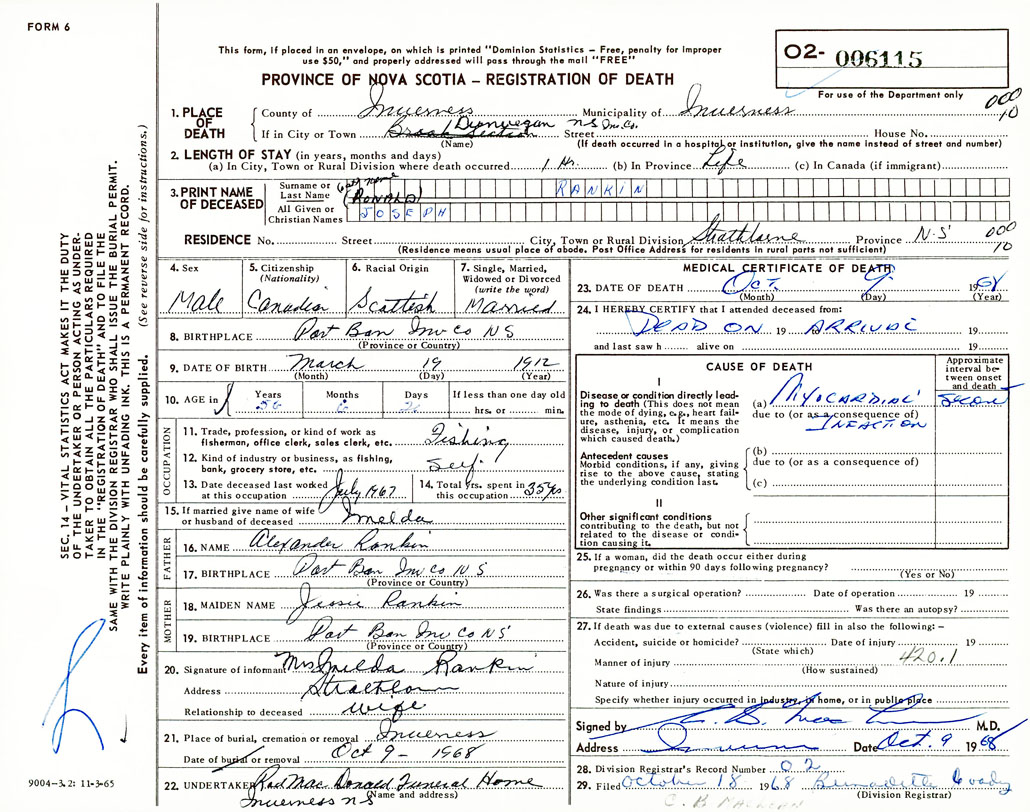 FORM 6
This form, if placed in an envelope, on which is printed "Dominion Statistics – Free, penalty for improper
use $50," and properly addressed will pass through the mail "FREE"
PROVINCE OF NOVA SCOTIA – REGISTRATION OF DEATH
O2- 006115
For use of the Department only
000
10
1. PLACE OF DEATH
County of Inverness Municipality of Inverness
If in City or Town Dunvegan NS Inv. Co. Street House No.
(Name) (If death occurred in a hospital or institution, give the name instead of street and number)
2. LENGTH OF STAY (in years, months and days)
(a) In City, Town or Rural Division where death occurred 1 Hr. (b) In Province Life (c) In Canada (if immigrant)
3. PRINT NAME OF DECEASED
Surname or Last Name RANKIN
(RONALD)
All Given or Christian Names JOSEPH
RESIDENCE No. Street City, Town or Rural Division Strathlorne Province N.S
(Residence means usual place of abode. Post Office Address for residents in rural parts not sufficient)
000
10
4. Sex
Male
5. Citizenship (Nationality)
Canadian
6. Racial Origin
Scottish
7. Single, Married, Widowed or Divorced (write the word)
Married
8. BIRTHPLACE Port Ban Inv Co NS
(Province or Country)
9. DATE OF BIRTH March 19 1912
(Month) (Day) (Year)
10. AGE in Years Months Days If less than one day old
56 6 hrs. or min.
OCCUPATION
11. Trade, profession, or kind of work as fisherman, office clerk, sales clerk, etc. Fishing
12. Kind of industry or business, as fishing, bank, grocery store, etc. Self
13. Date deceased last worked at this occupation July 1967
14. Total Yrs. spent in this occupation 35 yrs
15. If married give name of wife or husband of deceased Imelda
FATHER
16. NAME Alexander Rankin
17. BIRTHPLACE Port Ban Inv Co N S
(Province or Country)
MOTHER
18. MAIDEN NAME Jessie Rankin
19. BIRTHPLACE Port Ban Inv Co NS
(Province or Country)
20. Signature of informant Mrs Imelda Rankin
Address
Relationship to deceased wife
21. Place of burial, cremation or removal Inverness
Date of burial or removal Oct 9 - 1968
22. UNDERTAKER Rod Mac Donald Funeral Home
(Name and address)
Inverness NS
MEDICAL CERTIFICATE OF DEATH
23. DATE OF DEATH Oct. 9 1968
(Month) (Day) (Year)
24. I HEREBY CERTIFY that I attended deceased from:
DEAD ON 19 ARRIVAL 19
and last saw h alive on 19
CAUSE OF DEATH
Approximate interval between onset and death
I
Disease or condition directly leading to death (This does not mean the mode of dying, e.g., heart failure, asthenia, etc. It means the disease, injury, or complication which caused death.)
(a) MYOCARDIAL
due to (or as consequence of)
INFARCTION
Antecedent causes
Morbid conditions, if any, giving rise to the above cause, stating the underlying condition last.
(b)
due to (or as a consequence of)
(c)
II
Other significant conditions
contributing to the death, but not related to the disease or condition causing it.
25. If a woman, did the death occur either during
pregnancy or within 90 days following pregnancy?
(Yes or No)
26. Was there a surgical operation? Date of operation 19
State findings Was there an autopsy?
27. If death was due to external causes (violence) fill in also the following:–
Accident, suicide or homicide? Date of injury 19
(State which)
420.1
Manner of injury
(How sustained)
Nature of injury
Specify whether injury occurred in industry, in home, or in public place
Signed by M.D.
Address Date Oct. 9 1968
28. Division Registrar's Record Number 02
29. Filed October 18 1968 Bernadette
(Division Registrar)
SEC. 14 – VITAL STATISTICS ACT MAKES IT THE DUTY
OF THE UNDERTAKER OR PERSON ACTING AS UNDER-
TAKER TO OBTAIN ALL THE PARTICULARS REQUIRED
IN THE "REGISTRATION OF DEATH" AND TO FILE THE
SAME WITH THE DIVISION REGISTRAR WHO SHALL ISSUE THE BURIAL PERMIT.
WRITE PLAINLY WITH UNFADING INK. THIS IS A PERMANENT RECORD.
Every item of information should be carefully supplied. (See reverse side for instructions.)
9004-3.2: 11-3-65